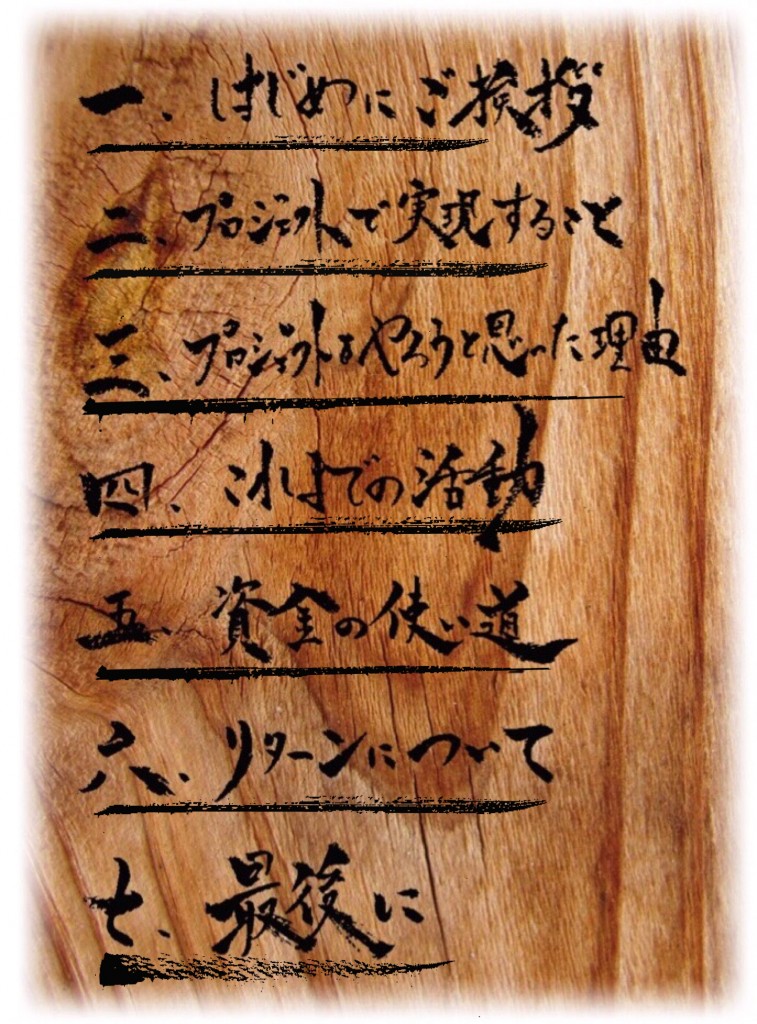 一、はじめにご挨拶
二、プロジェクトで実現すること
三、プロジェクトをやろうと思った理由
四、これまでの活動
五、資金の使い道
六、リターンについて
七、最後に